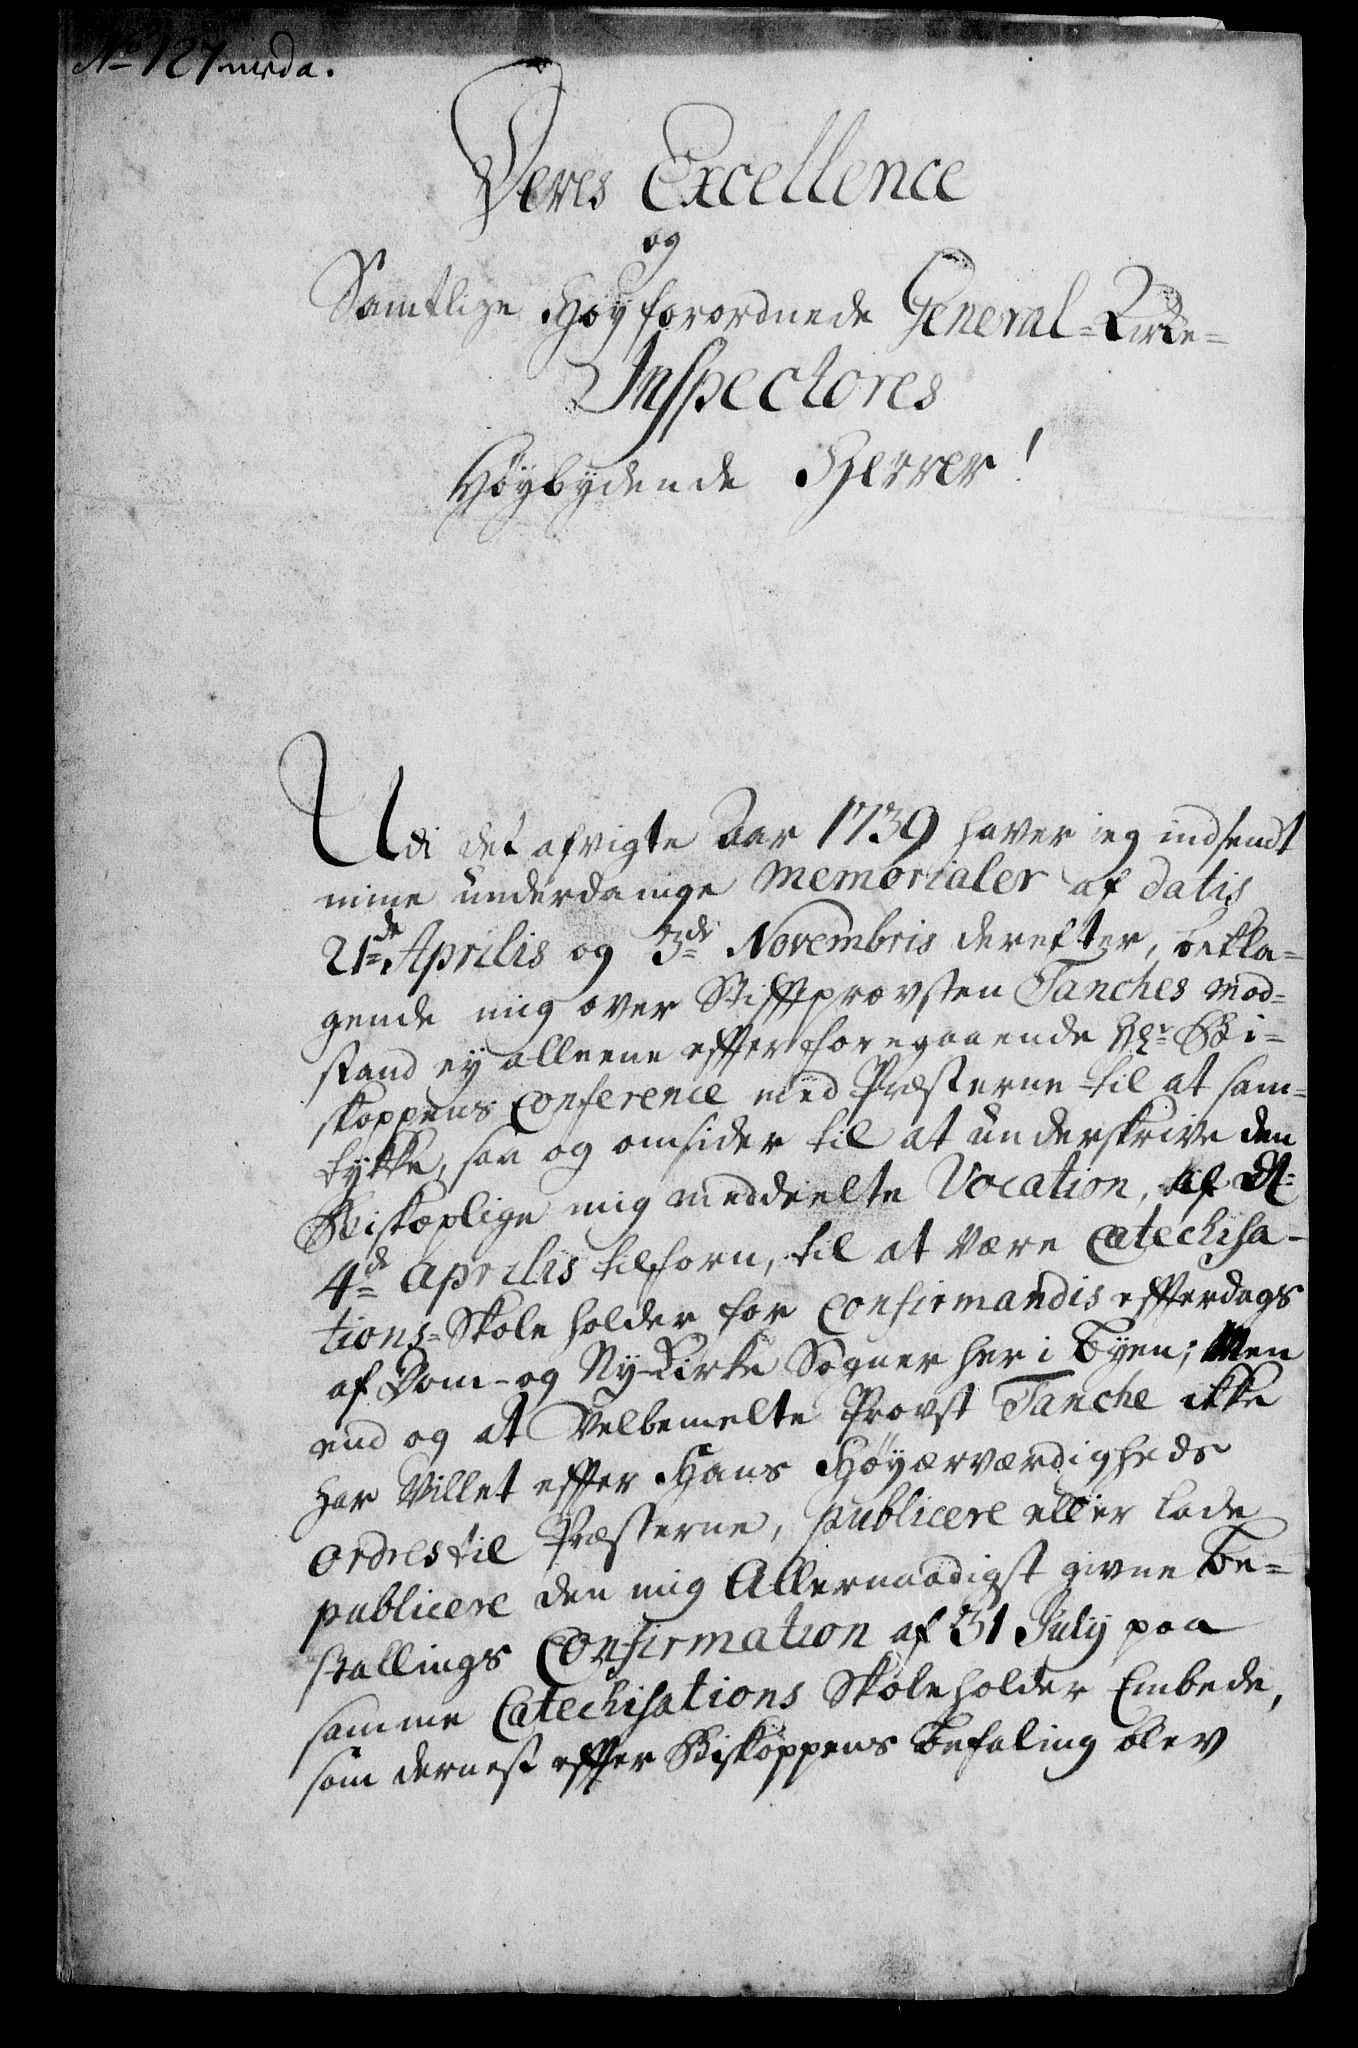 No 127
Deres Excellence
og
Samtlige Høyforordnede General-Kirke-
Inspectores
Høybydende Herrer!
Udi det afvigte Aar 1739 haver ieg indsendt
mine underdanige Memorialer af datis
21de Aprilis og 3di Novembris derefter, bekla-
gende mig over Stiftprovsten Tanches Mod-
stand ey alleene effter foregaaende Hr Bi-
skoppens Conference med Præsterne til at sam-
tykke, saa og omsider til at underskrive den
Biskoplige mig meddeelte Vocation, af Dt
4de Aprilis tilforn, til at være Catechisa-
tions-Skoleholder for Confirmandis effterdags
af Dom- og Ny-Kirke Sogner her i Byen; Men
end og at Velbemelte Provst Tanche ikke
har Villet effter Hans Høyærværdigheds
Ordres til Præsterne, publicere eller lade
publicere den mig Allernaadigst givne Be-
stallings Confirmation af 31 July paa
samme Catechisations Skoleholder Embede,
som dernest effter Biskoppens Befaling blev